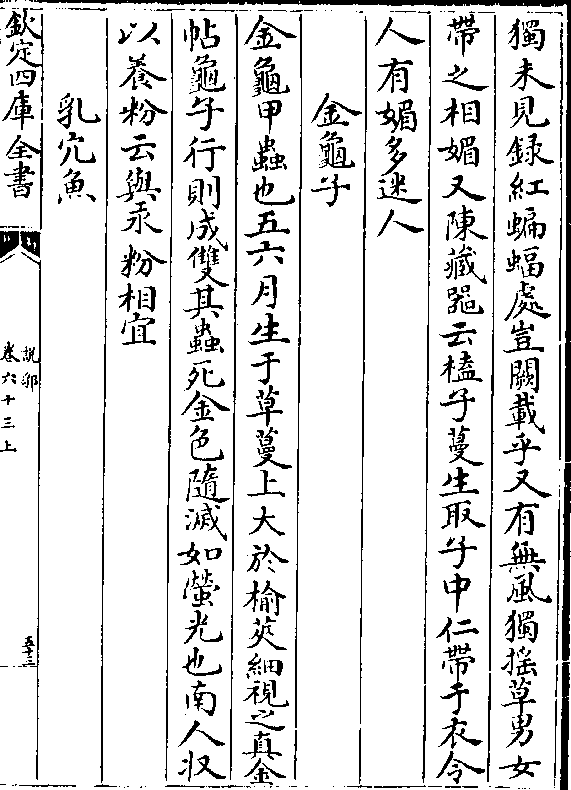 獨未見録紅蝙蝠處豈闕載乎又有無風獨揺草男女
帶之相媚又陳藏器云榼子蔓生取子中仁帶于衣令
人有媚多迷人
金龜子
金龜甲蟲也五六月生于草蔓上大於榆莢細視之真金
帖龜子行則成雙其蟲死金色隨滅如螢光也南人収
以養粉云與汞粉相宜
乳穴魚
欽定四庫全書
説郛
卷六十三上
五十三